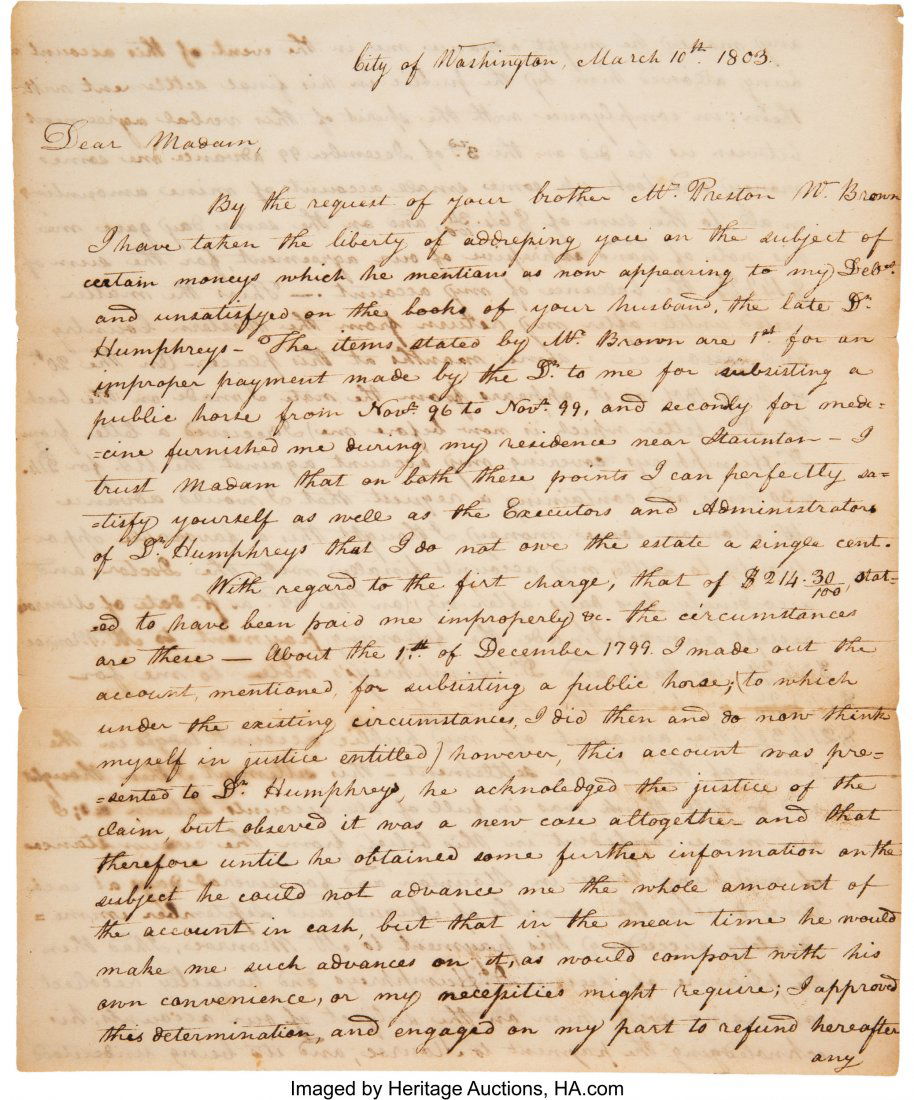 City of Washington, March 10th. 1803.
Dear Madam,
By the request of your brother Mr. Preston W. Brown
I have taken the liberty of addressing you on the subject of
certain moneys which he mentions as now appearing to my Debt.
and unsatisfyed on the books of your husband, the late Dr.
Humphreys – The items stated by Mr. Brown are 1st. for an
improper payment made by the Dr. to me for subsisting a
public horse from Novr. 96 to Novr. 99, and secondly for medi=
=cine furnished me during my residence near Staunton – I
trust Madam that on both these points I can perfectly sa=
=tisfy yourself as well as the Executors and Administrators
of Dr. Humphreys that I do not owe the estate a single cent.
With regard to the first charge, that of $214.30/100, stat=
=ed to have been paid me improperly &c. the circumstances
are these — About the 1st. of December 1799. I made out the
account, mentioned, for subsisting a public horse; (to which
under the existing circumstances, I did then and do now think
myself in justice entitled) however, this account was pre=
=sented to Dr. Humphreys, he acknoledged the justice of the
claim, but observed it was a new case altogether and that
therefore until he obtained some further information on the
subject he could not advance me the whole amount of
the account in cash, but that in the mean time he would
make me such advances on it, as would comport with his
own convenience, or my necessities might require; I approved
this determination, and engaged on my part to refund hereafter
any
Imaged by Heritage Auctions, HA.com